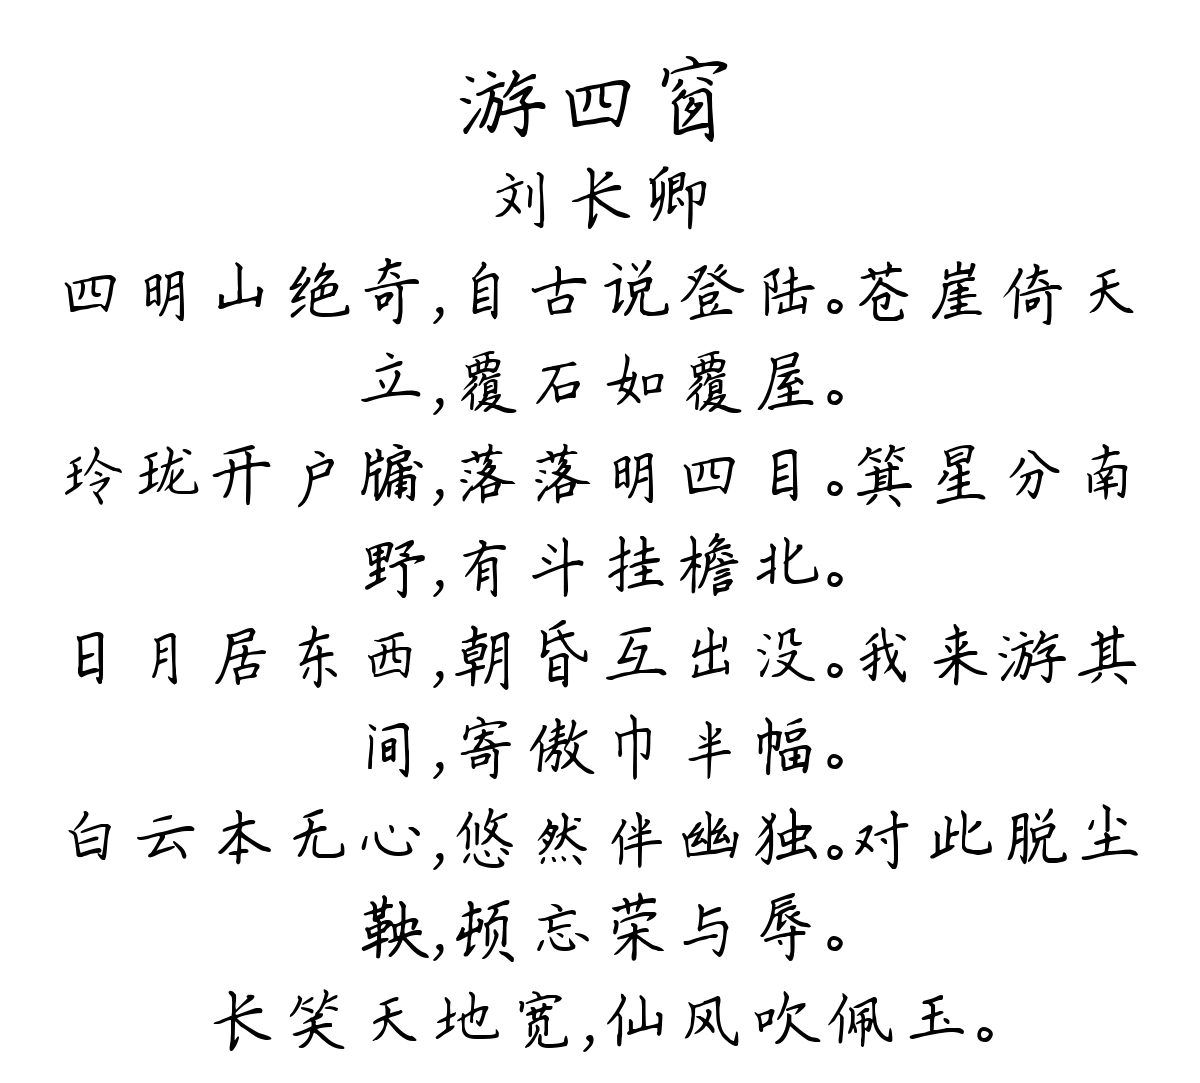 游四窗
刘长卿
四明山绝奇,自古说登陆。苍崖倚天
立,覆石如覆屋。
玲珑开户牖,落落明四目。箕星分南
野,有斗挂檐北。
日月居东西,朝昏互出没。我来游其
间,寄傲巾半幅。
白云本无心,悠然伴幽独。对此脱尘
鞅,顿忘荣与辱。
长笑天地宽,仙风吹佩玉。